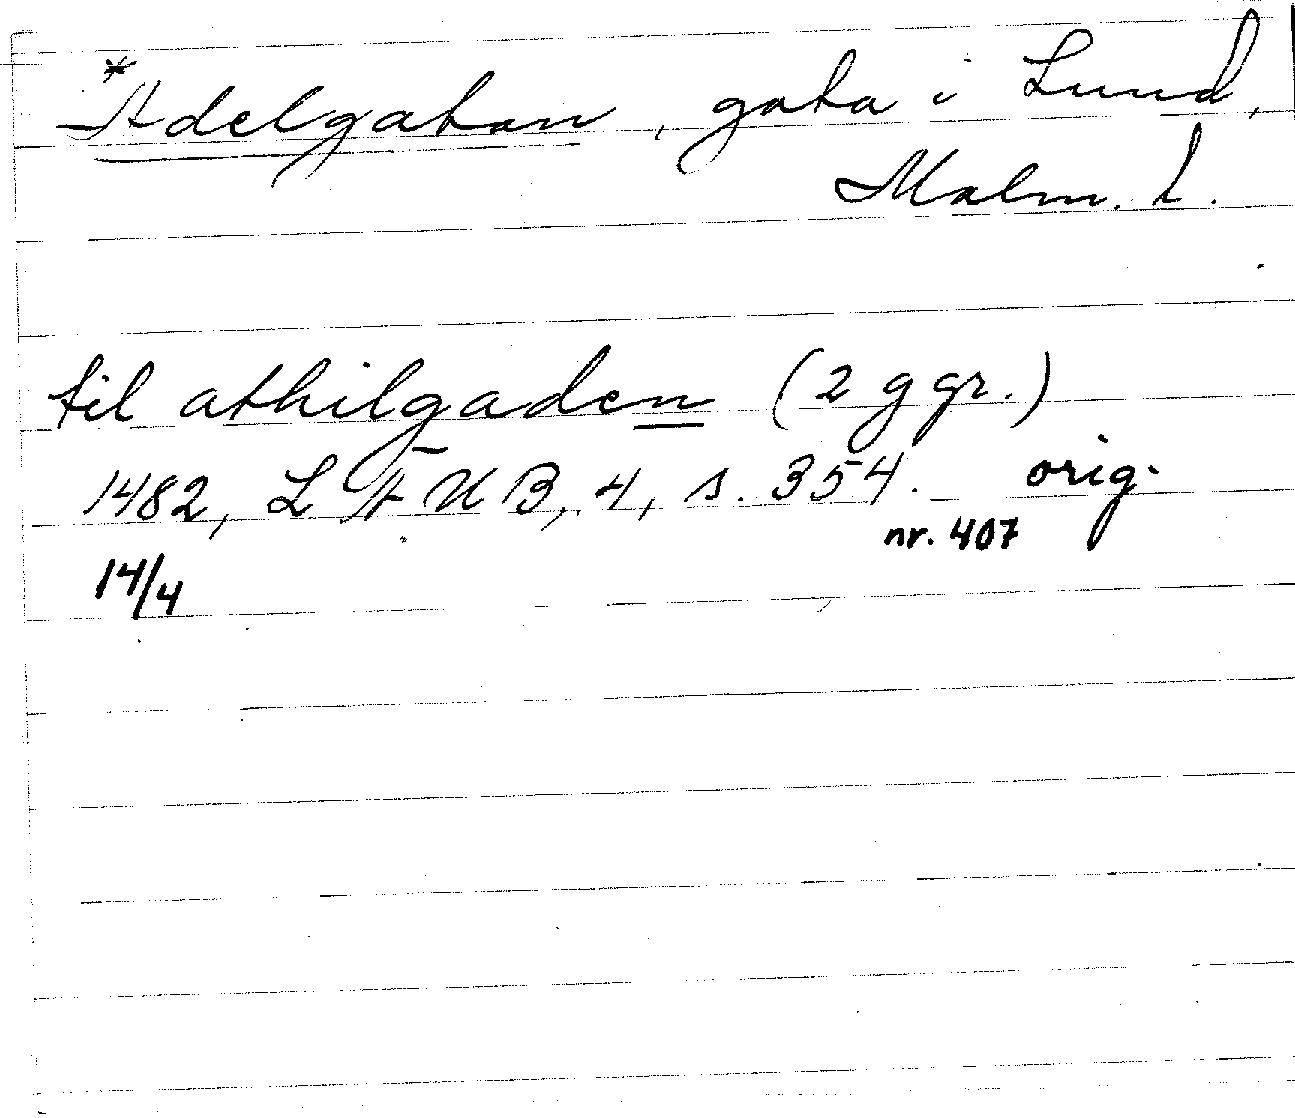 *Adelgatan, gata i Lund,
Malm. l.
til athilgaden (2 ggr.)
1482, LÄUB, 4, s. 354. orig.
nr. 407
14/4